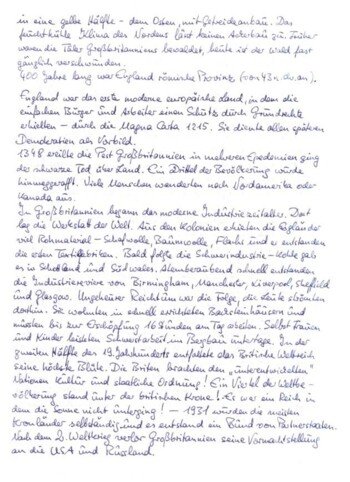 in eine gelbe Hälfte - dem Osten, mit Getreideanbau. Das
feuchtkühle Klima des Nordens lässt keinen Ackerbau zu. Früher
waren die Täler Großbritanniens bewaldet, heute ist der Wald fast
gänzlich verschwunden.
400 Jahre lang war England römische Provinz (von 43 n. an).
England war das erste moderne europäische Land, in dem die
einfachen Bürger und Arbeiter einen Schutz durch Grundrechte
erhielten - durch die Magna Carta 1215. Sie diente allen späteren
Demokratien als Vorbild.
1348 ereilte die Pest Großbritannien in mehreren Epedemien ging
der schwarze Tod über Land. Ein Drittel der Bevölkerung wurde
hinweggerafft. Viele Menschen wanderten nach Nordamerika oder
Kanada aus.
In Großbritannien begann das moderne Industriezeitalter. Dort
lag die Werkstatt der Welt. Aus den Kolonien erhielten die Engländer
viel Rohmaterial - Schafwolle, Baumwolle, Flachs und es entstanden
die ersten Textilfabriken. Bald folgte die Schwerindustrie - Kohle gab
es in Schottland und Südwales. Atemberaubend schnell entstanden
die Industriereviere von Birmingham, Manchester, Liverpool, Sheffield
und Glasgow. Ungeheurer Reichtum war die Folge, die Leute strömten
dorthin. Sie wohnten in schnell errichteten Backsteinhäusern und
mussten bis zur Erschöpfung 16 Stunden am Tag arbeiten. Selbst Frauen
und Kinder leisteten Schwerarbeit im Bergbau untertage. In der
zweiten Hälfte des 19. Jahrhunderts entfaltete das Britische Weltreich
seine höchste Blüte. Die Briten brachten den "unterentwickelten"
Nationen Kultur und staatliche Ordnung! Ein Viertel der Weltbe-
völkerung stand unter der britischen Krone! Es war ein Reich in
dem die Sonne nicht unterging! - 1931 wurden die meisten
Kronländer selbständig und es entstand ein Bund von Partnerstaaten.
Nach dem 2. Weltkrieg verlor Großbritannien seine Vormachtstellung
an die USA und Russland.